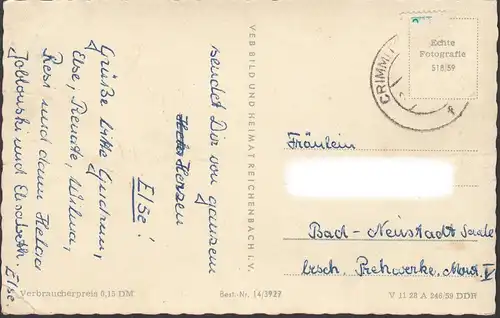 sendet Dir von ganzem
Herzen
Else!
Grüße bitte Gudrun,
Else, Renate, Wilma,
Resi und dann Helga
und Elisabeth.
Else.
VEB BILD UND HEIMAT REICHENBACH i. V.
CRIMMIT
Echte
Fotografie
518/59
Fräulein
Bad-Neustadt Saale
Prehwerke,
Verbraucherpreis 0,15 DM
Best-Nr. 14/3927
V 11 28 A 246/59 DDR